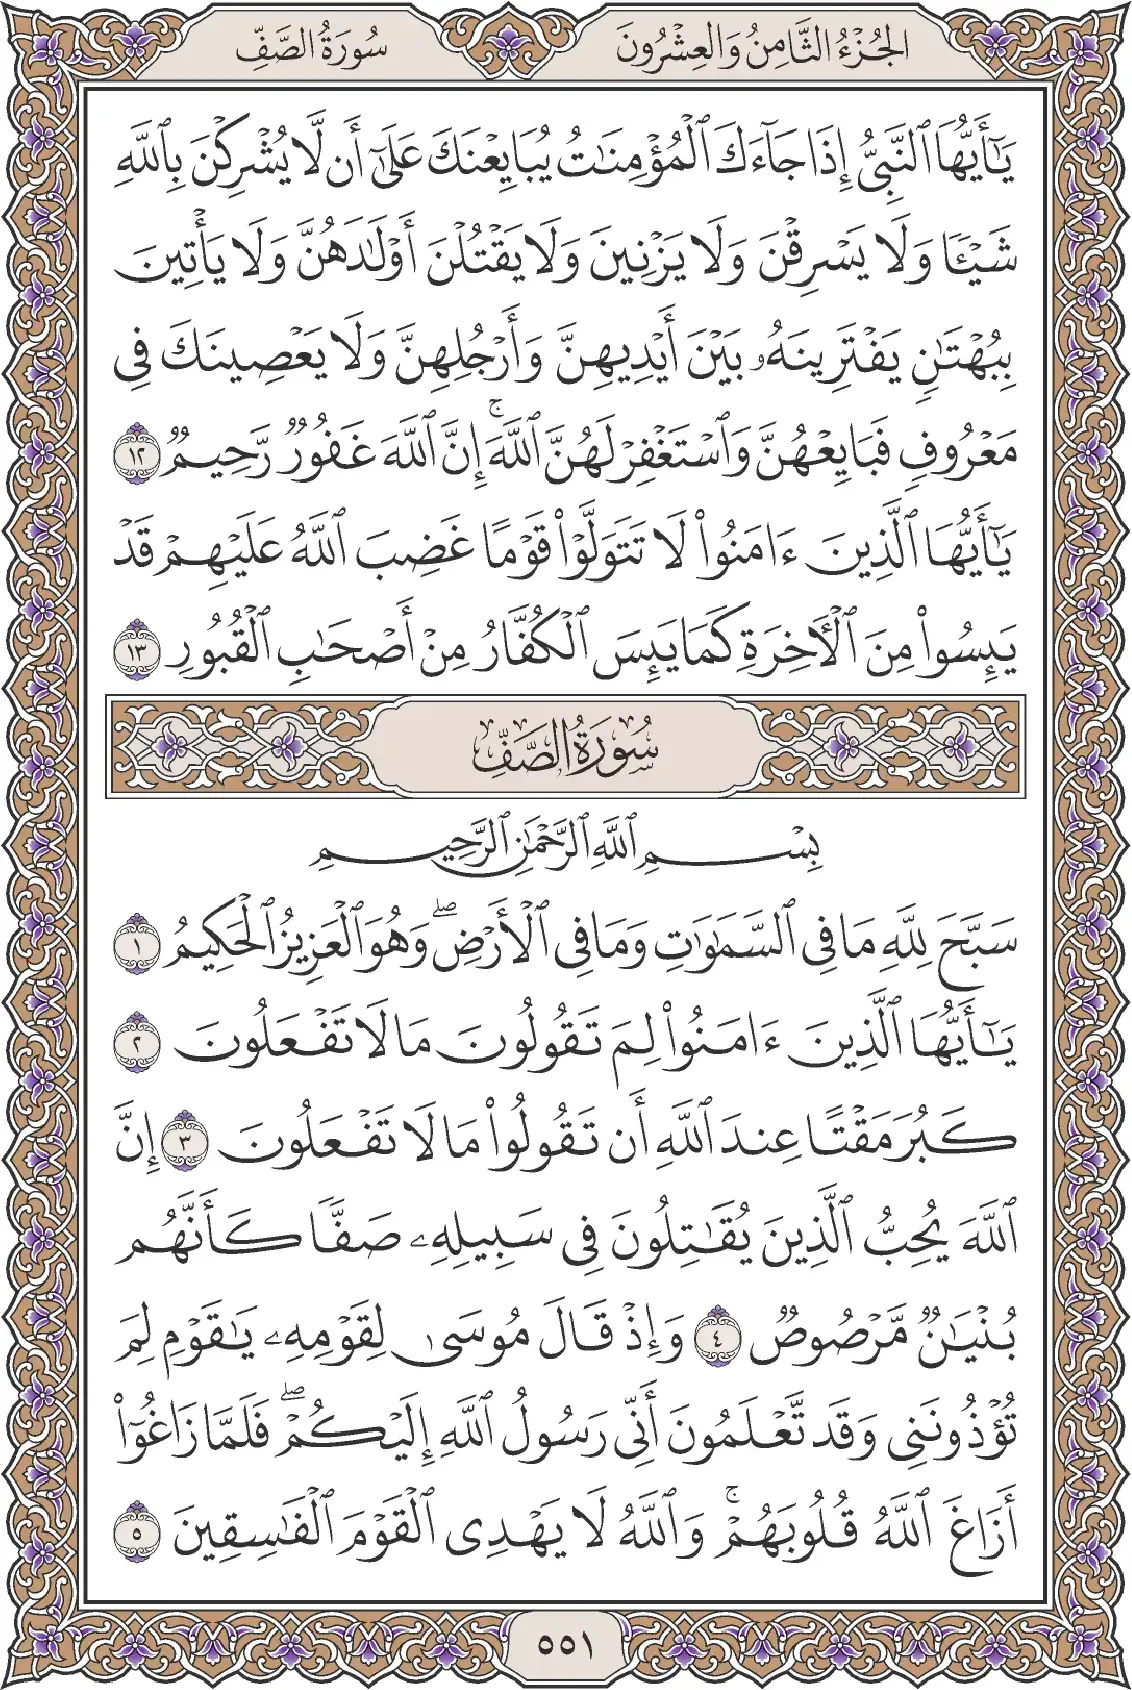 الجُزْءُ الثَّامِنُ وَالعِشْرُونَ
سُورَةُ الصَّفِّ
يَٰٓأَيُّهَا ٱلنَّبِيُّ إِذَا جَآءَكَ ٱلْمُؤْمِنَٰتُ يُبَايِعْنَكَ عَلَىٰٓ أَن لَّا يُشْرِكْنَ بِٱللَّهِ
شَيْـًٔا وَلَا يَسْرِقْنَ وَلَا يَزْنِينَ وَلَا يَقْتُلْنَ أَوْلَٰدَهُنَّ وَلَا يَأْتِينَ
بِبُهْتَٰنٍ يَفْتَرِينَهُۥ بَيْنَ أَيْدِيهِنَّ وَأَرْجُلِهِنَّ وَلَا يَعْصِينَكَ فِى
مَعْرُوفٍ فَبَايِعْهُنَّ وَٱسْتَغْفِرْ لَهُنَّ ٱللَّهَ ۚ إِنَّ ٱللَّهَ غَفُورٌ رَّحِيمٌ ١٢
يَٰٓأَيُّهَا ٱلَّذِينَ ءَامَنُوا۟ لَا تَتَوَلَّوْا۟ قَوْمًا غَضِبَ ٱللَّهُ عَلَيْهِمْ قَدْ
يَئِسُوا۟ مِنَ ٱلْـَٔاخِرَةِ كَمَا يَئِسَ ٱلْكُفَّارُ مِنْ أَصْحَٰبِ ٱلْقُبُورِ ١٣
سُورَةُ الصَّفِّ
بِسْمِ ٱللَّهِ ٱلرَّحْمَٰنِ ٱلرَّحِيمِ
سَبَّحَ لِلَّهِ مَا فِى ٱلسَّمَٰوَٰتِ وَمَا فِى ٱلْأَرْضِ ۖ وَهُوَ ٱلْعَزِيزُ ٱلْحَكِيمُ ١
يَٰٓأَيُّهَا ٱلَّذِينَ ءَامَنُوا۟ لِمَ تَقُولُونَ مَا لَا تَفْعَلُونَ ٢
كَبُرَ مَقْتًا عِندَ ٱللَّهِ أَن تَقُولُوا۟ مَا لَا تَفْعَلُونَ ٣ إِنَّ
ٱللَّهَ يُحِبُّ ٱلَّذِينَ يُقَٰتِلُونَ فِى سَبِيلِهِۦ صَفًّا كَأَنَّهُم
بُنْيَٰنٌ مَّرْصُوصٌ ٤ وَإِذْ قَالَ مُوسَىٰ لِقَوْمِهِۦ يَٰقَوْمِ لِمَ
تُؤْذُونَنِى وَقَد تَّعْلَمُونَ أَنِّى رَسُولُ ٱللَّهِ إِلَيْكُمْ ۖ فَلَمَّا زَاغُوٓا۟
أَزَاغَ ٱللَّهُ قُلُوبَهُمْ ۚ وَٱللَّهُ لَا يَهْدِى ٱلْقَوْمَ ٱلْفَٰسِقِينَ ٥
٥٥١